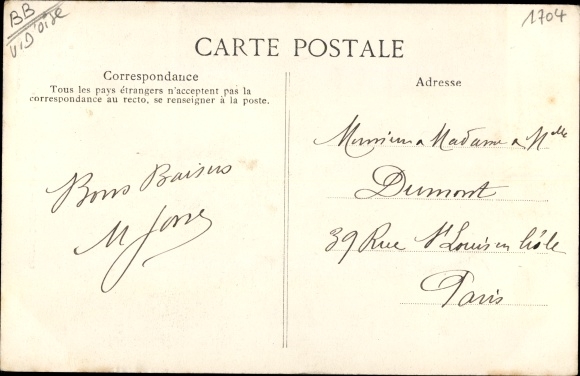 BB
V. D'OISE
1704
CARTE POSTALE
Correspondance
Tous les pays étrangers n'acceptent pas la
correspondance au recto, se renseigner à la poste.
Bons Baisers
M
Adresse
Monsieur & Madame & Melle
Dumont
39 Rue St Louis en l'isle
Paris